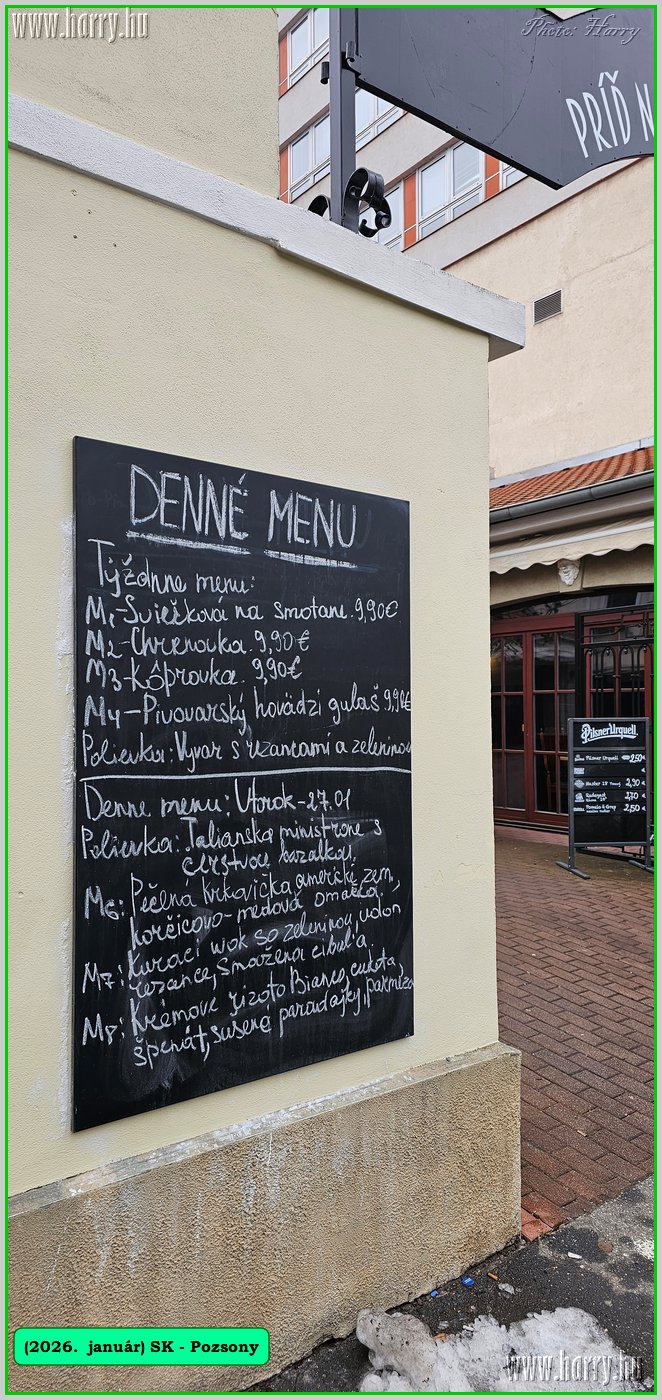 www.harry.hu
Photo: Harry
PRÍĎ N
DENNÉ MENU
Týždnne menu:
M1-Sviečková na smotane. 9,90€
M2-Chrenovka. 9,90€
M3-Kôprovka. 9,90€
M4-Pivovarský hovädzí guľaš 9,90€
Polievka: Vývar s rezancami a zeleninou
Denne menu: Utorok-27.01
Polievka: Talianska ministrone s
čerstvou bazalkou.
M6: Pečená krkovička, americké zem,
horčicovo-medová omáčka.
M7: Kurací wok so zeleninou, udon
rezance, smažená cibuľa.
M8: Krémové rizoto Bianco, cuketa,
špenát, sušené paradajky, parmezá
Pilsner Urquell
Pilsner Urquell 2,50
Master 18° Tmavý 2,90€
Radegast 2,30
2,50€
(2026. január) SK - Pozsony
www.harry.hu